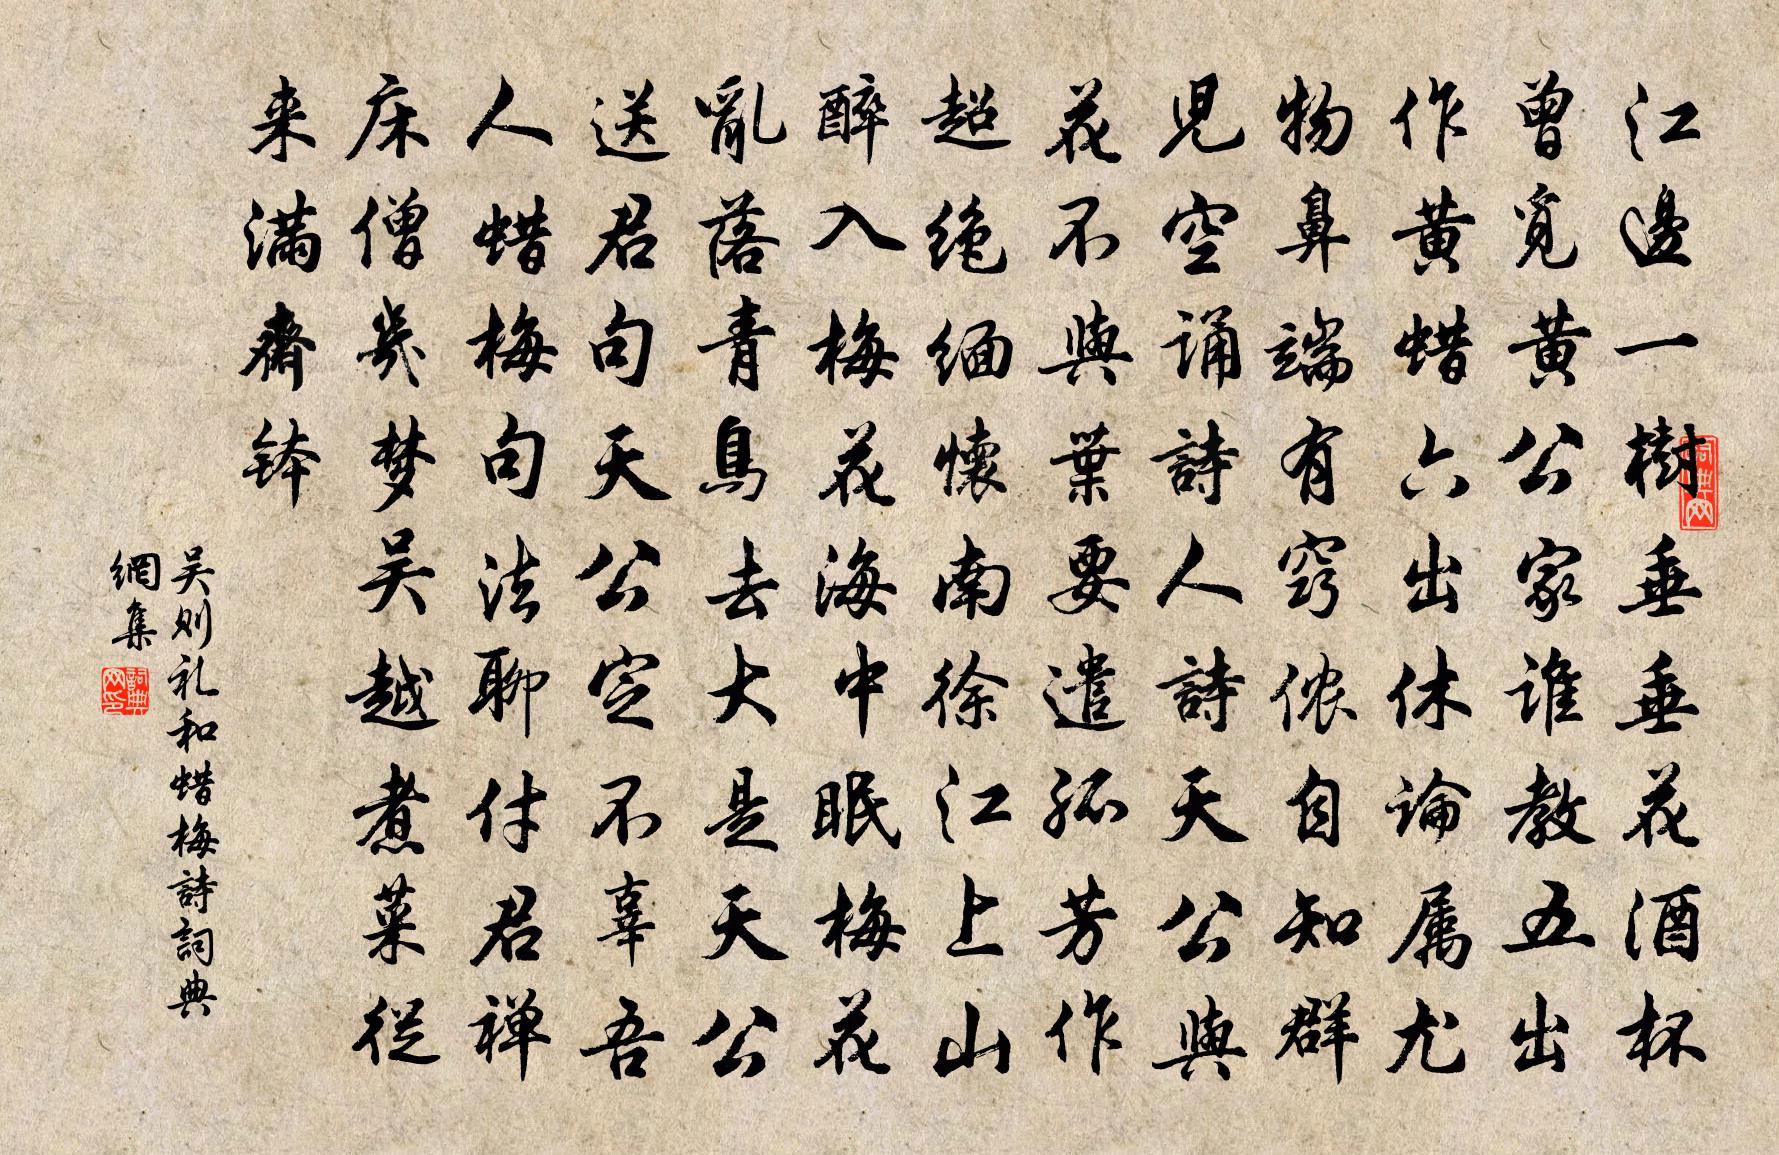 江邊一樹垂垂花酒杯
曾覓黄公家誰教五出
作黄蜡六出休論属尤
物鼻端有窍侬自知群
児空诵詩人詩天公與
花不與葉要遣孤芳作
超绝缅懷南徐江上山
醉入梅花海中眠梅花
亂落青鳥去大是天公
送君句天公定不辜吾
人蜡梅句法聊付君禅
床僧幾梦吴越煮菜从
来满齋钵
吴则礼和蜡梅詩詞典
網集
詞典网
詞典网印